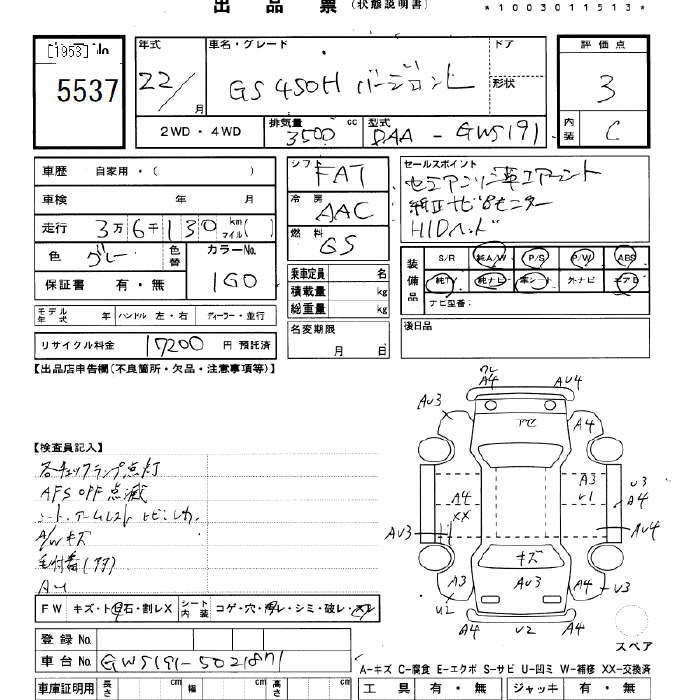 出品票 (状態説明書)
*1003011513*
[1953]
5537
年式 22/ 月
車名・グレード GS 450H バージョンL
ドア
形状
評価点 3
内装 C
2WD・4WD
排気量 3500 cc
型式 DAA-GWS191
車歴 自家用・( )
車検 年 月
走行 3万6千130 km マイル( )
色 グレー 色替
カラーNo. 1G0
保証書 有・無
モデル年式 年 ハンドル 左・右 ディーラー・並行
リサイクル料金 17200 円 預託済
シフト FAT
冷房 AAC
燃料 GS
乗車定員 名
積載量 kg
総重量 kg
名変期限
月 日
セールスポイント
純正ナビBモニター
HIDヘッド
装備品
S/R 純A/W P/S P/W ABS
純TV 純ナビ 革シート 外ナビ エアB
ナビ型番:
後日品
【出品店申告欄(不良個所・欠品・注意事項等)】
【検査員記入】
各チェックランプ点灯
AFS OFF 点滅
A/Wキズ
FW キズ・ト石・割レX
シート内装 コゲ・穴・スレ・シミ・破レ
登録No.
車台No. GWS191-5021871
車庫証明用 長さ cm 幅 cm 高さ cm
A4
AU4
AU3
A4
A3
U1
U3
A4
A4
XX
AU3
AU4
キズ
AU3
A3
U2
A4
U3
A4
U2
A4
スペア
A-キズ C-腐食 E-エクボ S-サビ U-凹ミ W-補修 XX-交換済
工具 有・無 ジャッキ 有・無